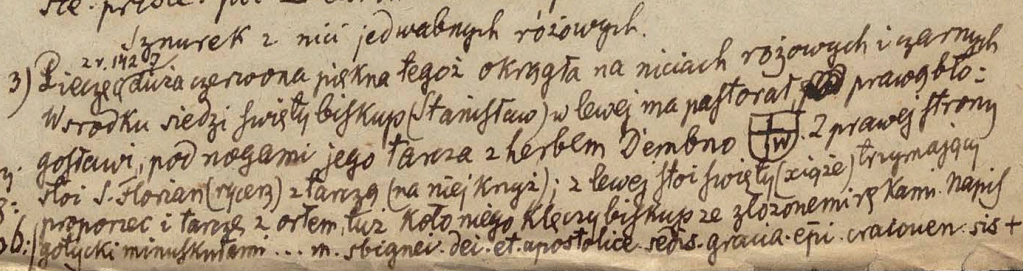 się.
Sznurek z nici jedwabnych różowych.
z r. 1426
3) Pieczęć duża czerwona piękna tegoż okrągła na niciach różowych i czarnych
W środku siedzi święty biskup (Stanisław) w lewej ma pastorał, prawą bło=
gosławi, pod nogami jego tarcza z herbem Dembno W. Z prawej strony
stoi S. Florian (rycerz) z tarczą (na niej krzyż); z lewej stoi święty (xiąże) trzymający
proporzec i tarczę z orłem, tuż koło niego klęczy biskup ze złożonemi rękami. Napis
gotycki minuskułami ... m. sbignei. dei. et. apostolice. sedis. gracia. epi. cracouen. sis +